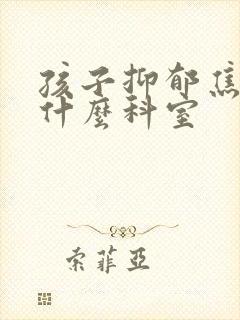 孩子抑郁焦
什麼科室
索菲亞